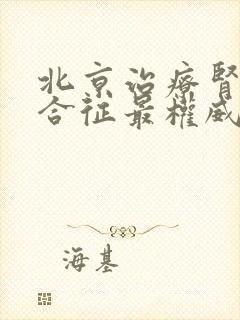 北京治療腎
合征最權威
海基